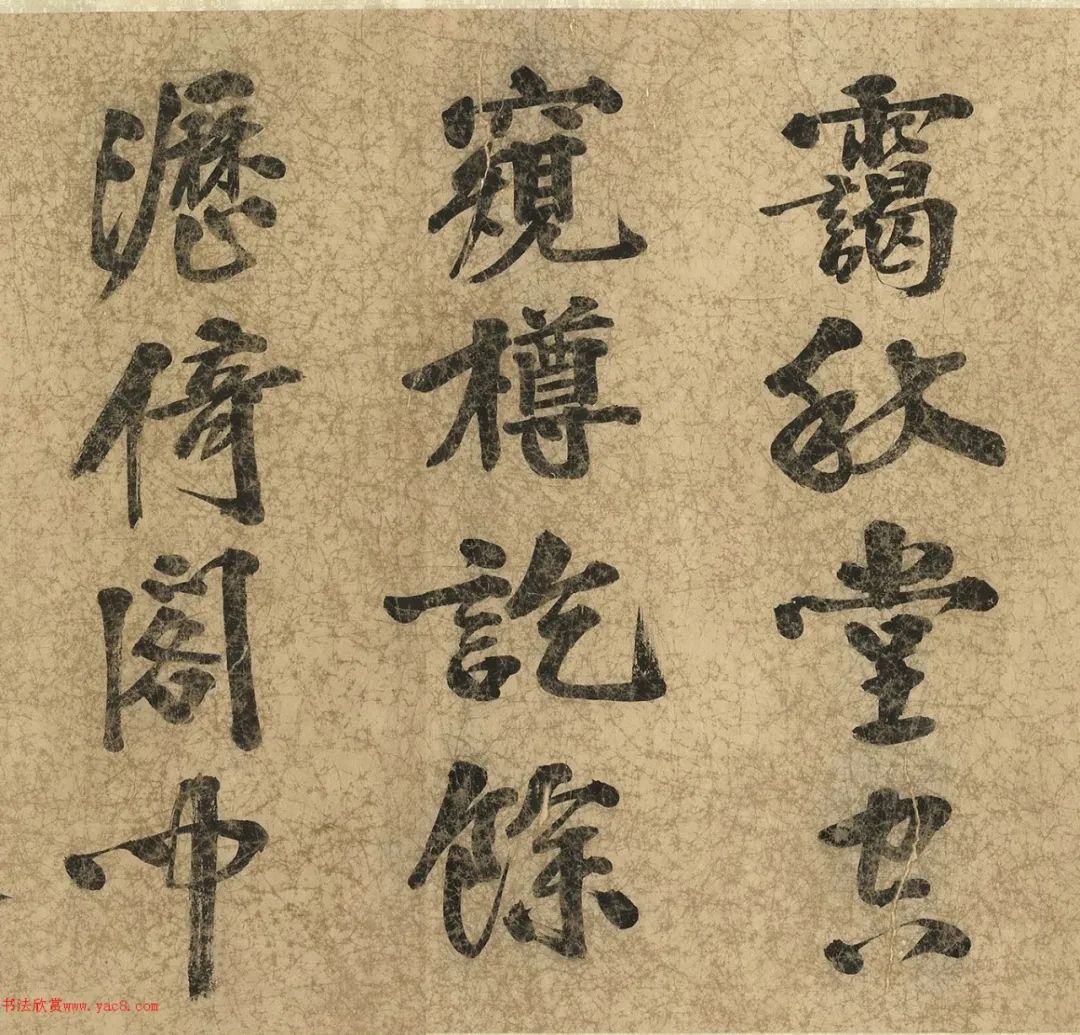 靄秋堂
窺樽訖餘
瀝倚閣
书法欣赏www.yac8.com